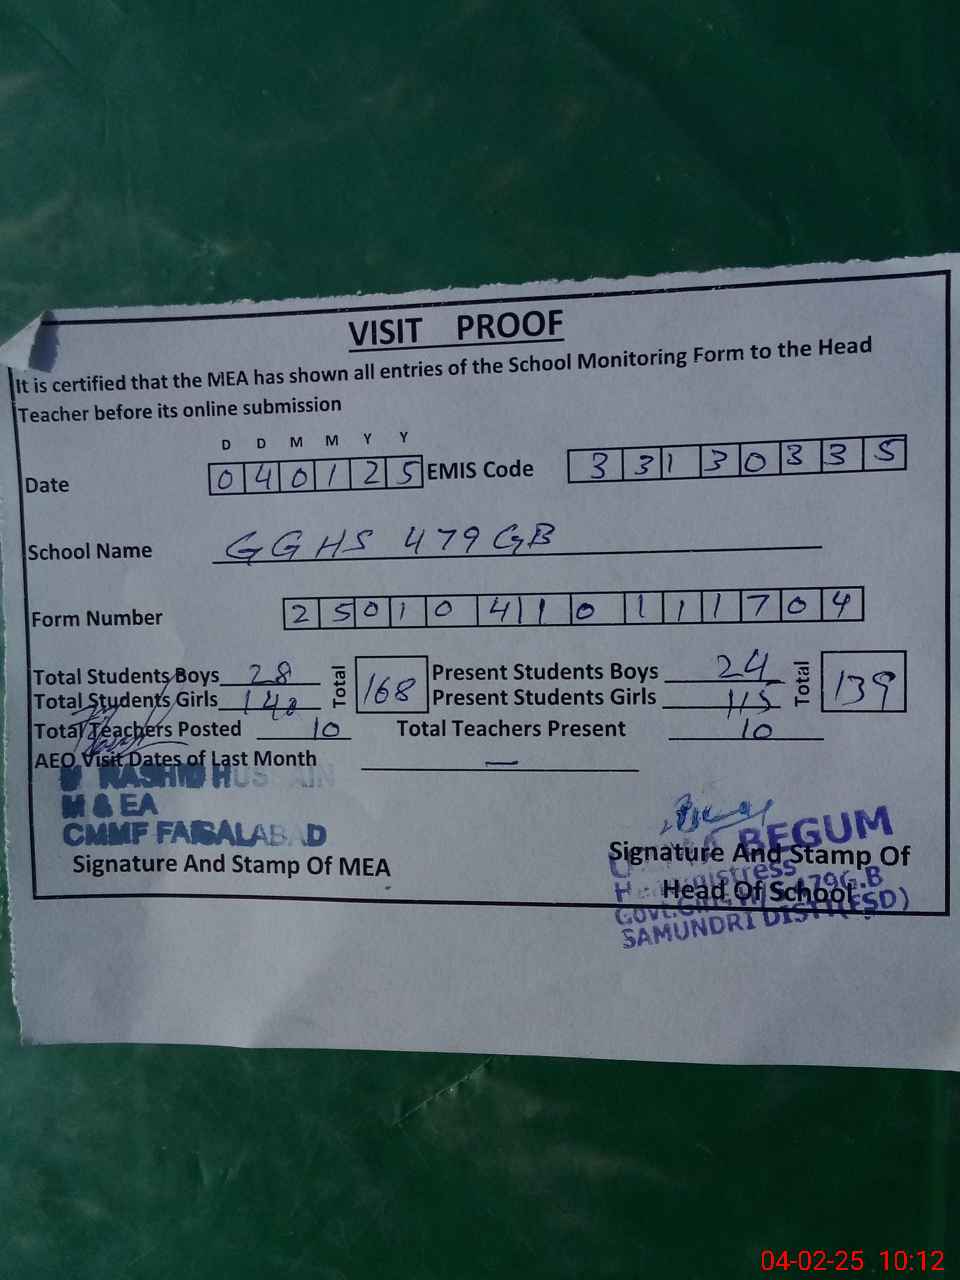 VISIT PROOF
It is certified that the MEA has shown all entries of the School Monitoring Form to the Head
Teacher before its online submission
D D M M Y Y
Date 040125 EMIS Code 33130335
School Name GGHS 479 GB
Form Number 250104101111704
Total Students Boys 28 Total 168 Present Students Boys 24 Total 139
Total Students Girls 140 Present Students Girls 115
Total Teachers Posted 10 Total Teachers Present 10
AEO Visit Dates of Last Month —
RASHID HUSSAIN
M & EA
CMMF FAISALABAD
Signature And Stamp Of MEA
BEGUM
Signature And Stamp Of
Headmistress
Head Of School
479G.B
SAMUNDRI DISTT(FSD)
04-02-25 10:12